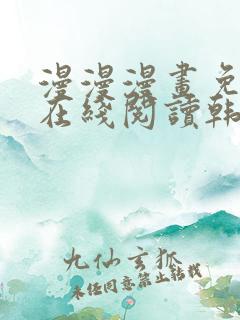 漫漫漫畫免
在綫閱讀韩
九仙玄狐
未经同意禁止转载